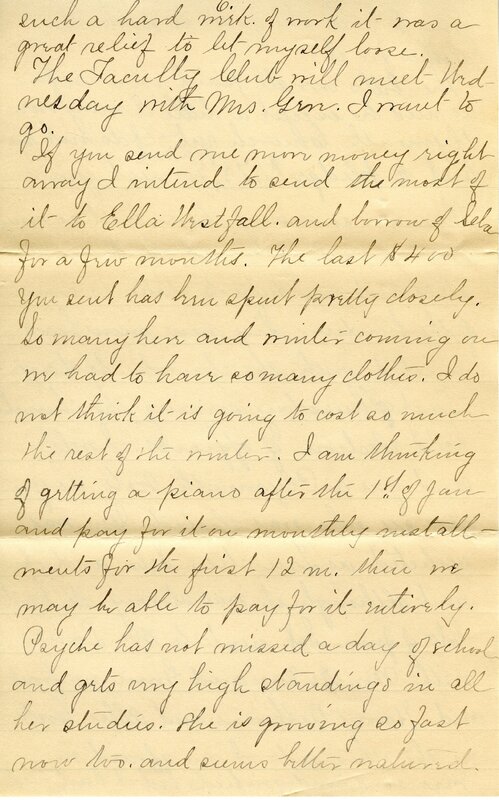 such a hard week of work it was a
great relief to let myself loose.
The Faculty Club will meet Wed-
nesday with Mrs. Gen. I want to
go.
If you send me more money right
away I intend to send the most of
it to Ella Westfall. and borrow of Reba
for a few months. The last $400
you sent has been spent pretty closely.
So many here and winter coming on
we had to have so many clothes. I do
not think it is going to cost so much
the rest of the winter. I am thinking
of getting a piano after the 1st of Jan
and pay for it on monthly install-
ments for the first 12 m. then we
may be able to pay for it entirely.
Psyche has not missed a day of school
and gets very high standings in all
her studies. She is growing so fast
now too. and seems better natured.